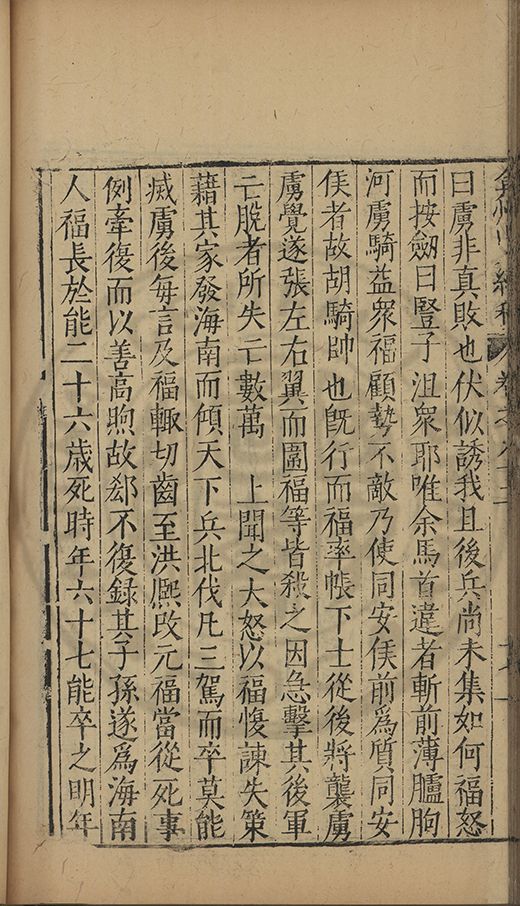 弇州山人續稿 卷之八十三
曰虜非真敗也伏似誘我且後兵尚未集如何福怒
而按劒曰豎子沮衆耶唯余馬首違者斬前薄臚朐
河虜騎益衆福顧勢不敵乃使同安侯前爲質同安
侯者故胡騎帥也旣行而福率帳下士從後將襲虜
虜覺遂張左右翼而圍福等皆殺之因急擊其後軍
亡脫者所失亡數萬　上聞之大怒以福愎諫失策
藉其家發海南而傾天下兵北伐凡三駕而卒莫能
烕虜後每言及福輙切齒至洪熈改元福當從死事
例牽復而以善高煦故郄不復録其子孫遂爲海南
人福長於能二十六歲死時年六十七能卒之明年